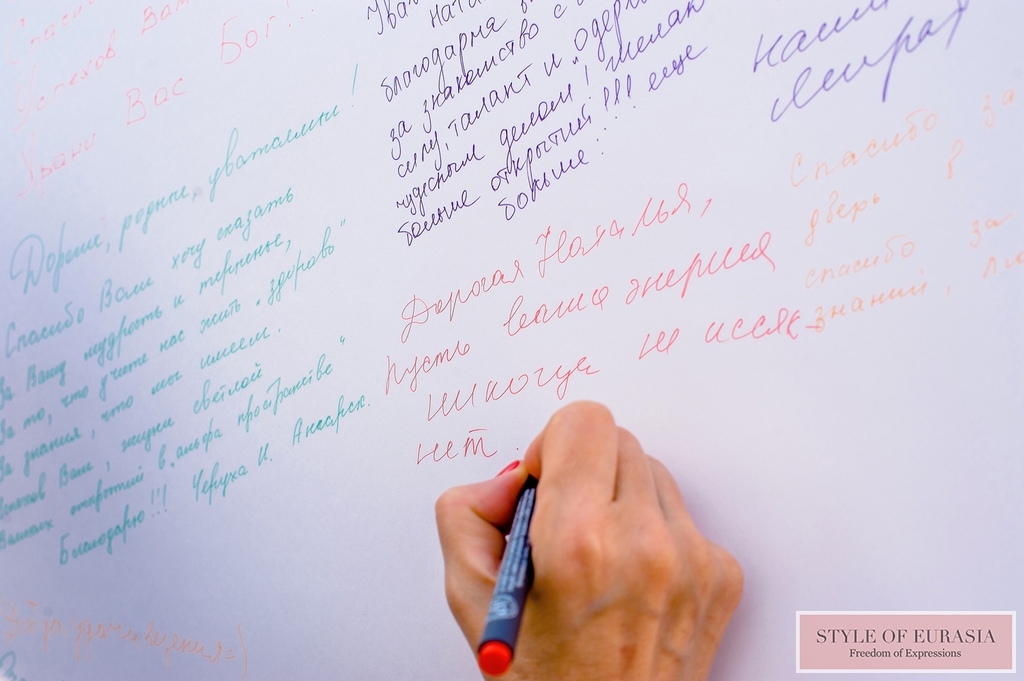 Успехов Вам
Храни Вас Бог!..
Дорогие, родные, уважаемые!
Спасибо Вам хочу сказать
За Вашу мудрость и терпенье,
За то, что учите нас жить „здорово“
За знания, что мы имеем.
Успехов Вам, жизни светлой
Великих открытий в „альфа пространстве“
Благодарю!!! И. Ангарск.
благодарна
за знакомство с
силу, талант и
чудесным делом, желаю
больше открытий!!! еще
больше:
Дорогая Наталья,
Пусть ваша энергия
никогда не иссяк-
нет.
Спасибо за
дверь в
спасибо за
знания,
STYLE OF EURASIA
Freedom of Expressions